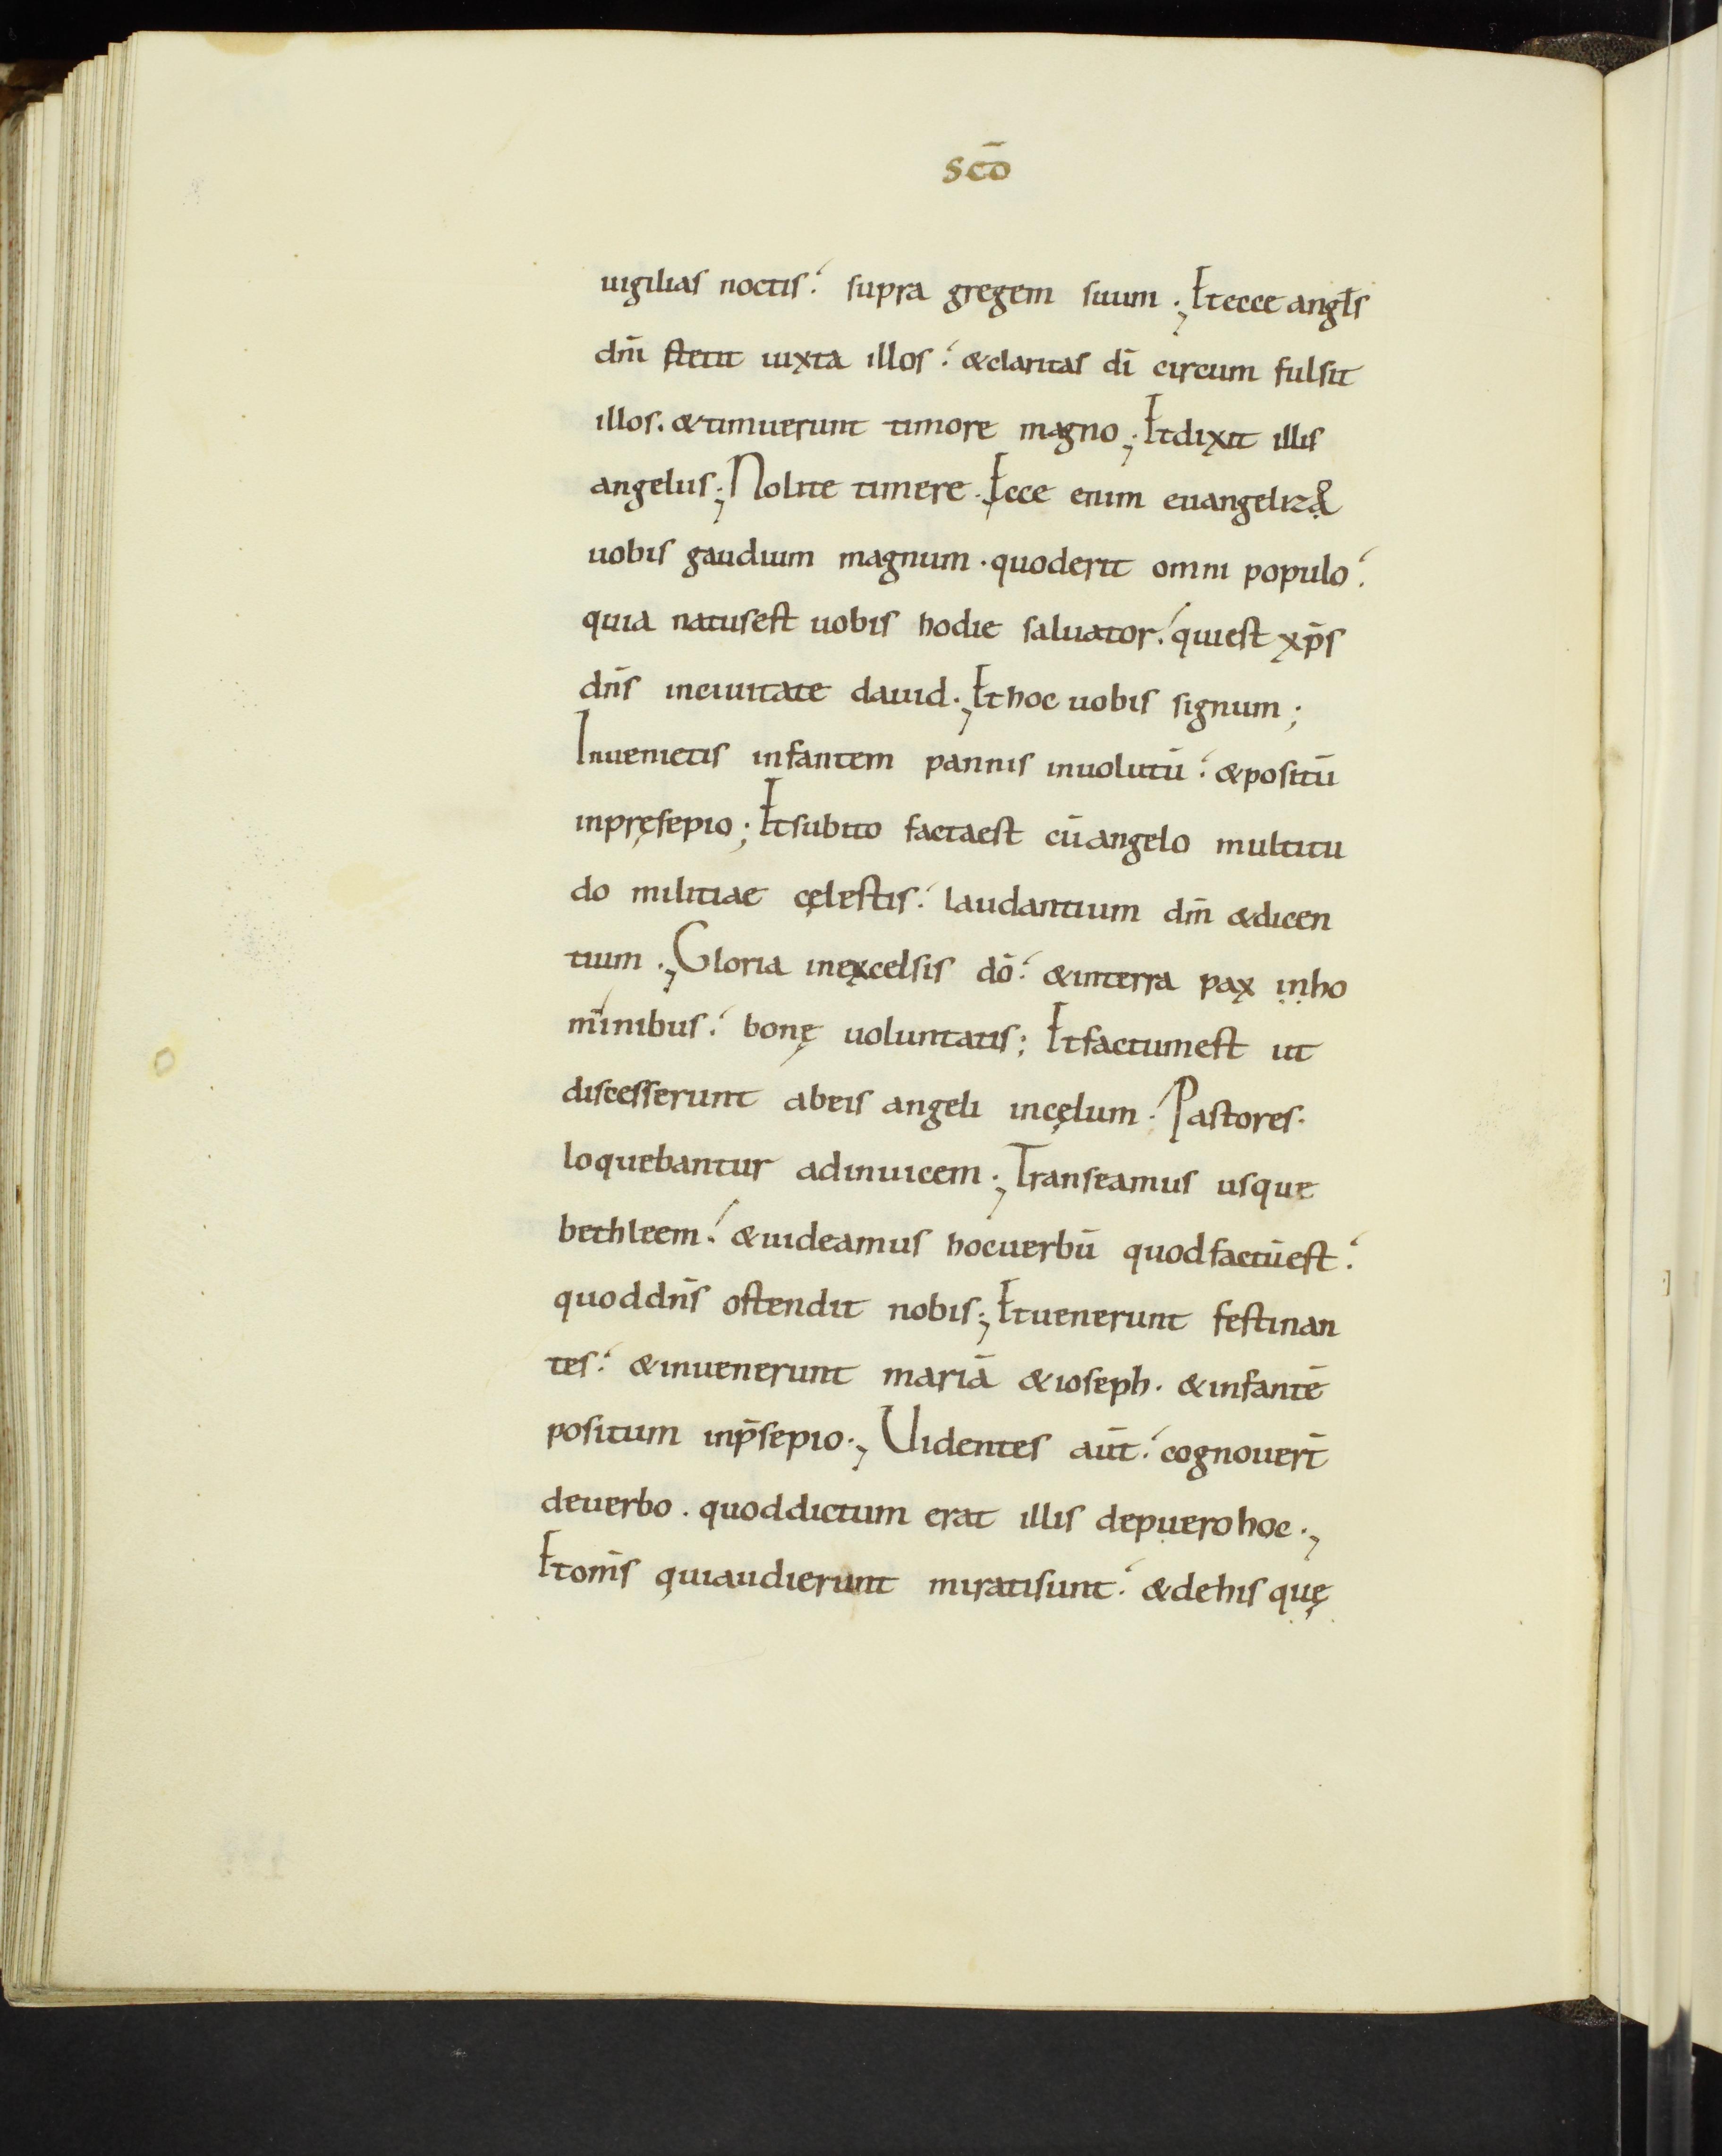 scō
uigilias noctis. supra gregem suum ; Et ecce angl̄s
dn̄i stetit iuxta illos. & claritas dī circum fulsit
illos. & timuerunt timore magno ; Et dixit illis
angelus ; Nolite timere. Ecce enim euangelizo
uobis gaudium magnum. quod erit omni populo.
quia natus est uobis hodie saluator. qui est xp̄s
dn̄s in ciuitate dauid ; Et hoc uobis signum ;
Inuenietis infantem pannis inuolutū. & positū
in pręsepio ; Et subito facta est cū angelo multitu
do militiae cęlestis. laudantium dm̄ & dicen
tium ; Gloria in excelsis dō. & in terra pax in ho
minibus. bonę uoluntatis ; Et factum est ut
discesserunt ab eis angeli in cęlum. Pastores.
loquebantur ad inuicem ; Transeamus usque
bethleem. & uideamus hoc uerbū quod factū est.
quod dn̄s ostendit nobis ; Et uenerunt festinan
tes. & inuenerunt mariā & ioseph. & infantē
positum in p̄sepio ; Uidentes aūt. cognouer̄t
de uerbo. quod dictum erat illis de puero hoc ;
Et om̄s qui audierunt mirati sunt. & de his quę